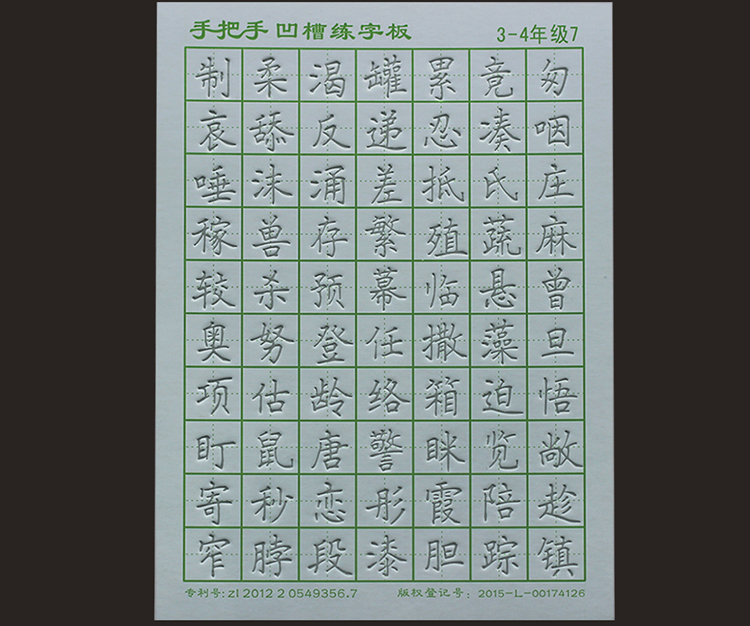 手把手 凹槽练字板
3-4年级7
制柔渴罐累竟匆
哀舔反递忍凑咽
唾沫涌差抵氏庄
稼兽存繁殖蔬麻
较杀预幕临悬曾
奥努登任撒藻旦
项估龄络箱迫悟
盯鼠唐警眯览敞
寄秒恋彤霞陪趁
窄脖段漆胆踪镇
专利号:zl 2012 2 0549356.7 版权登记号：2015-L-00174126